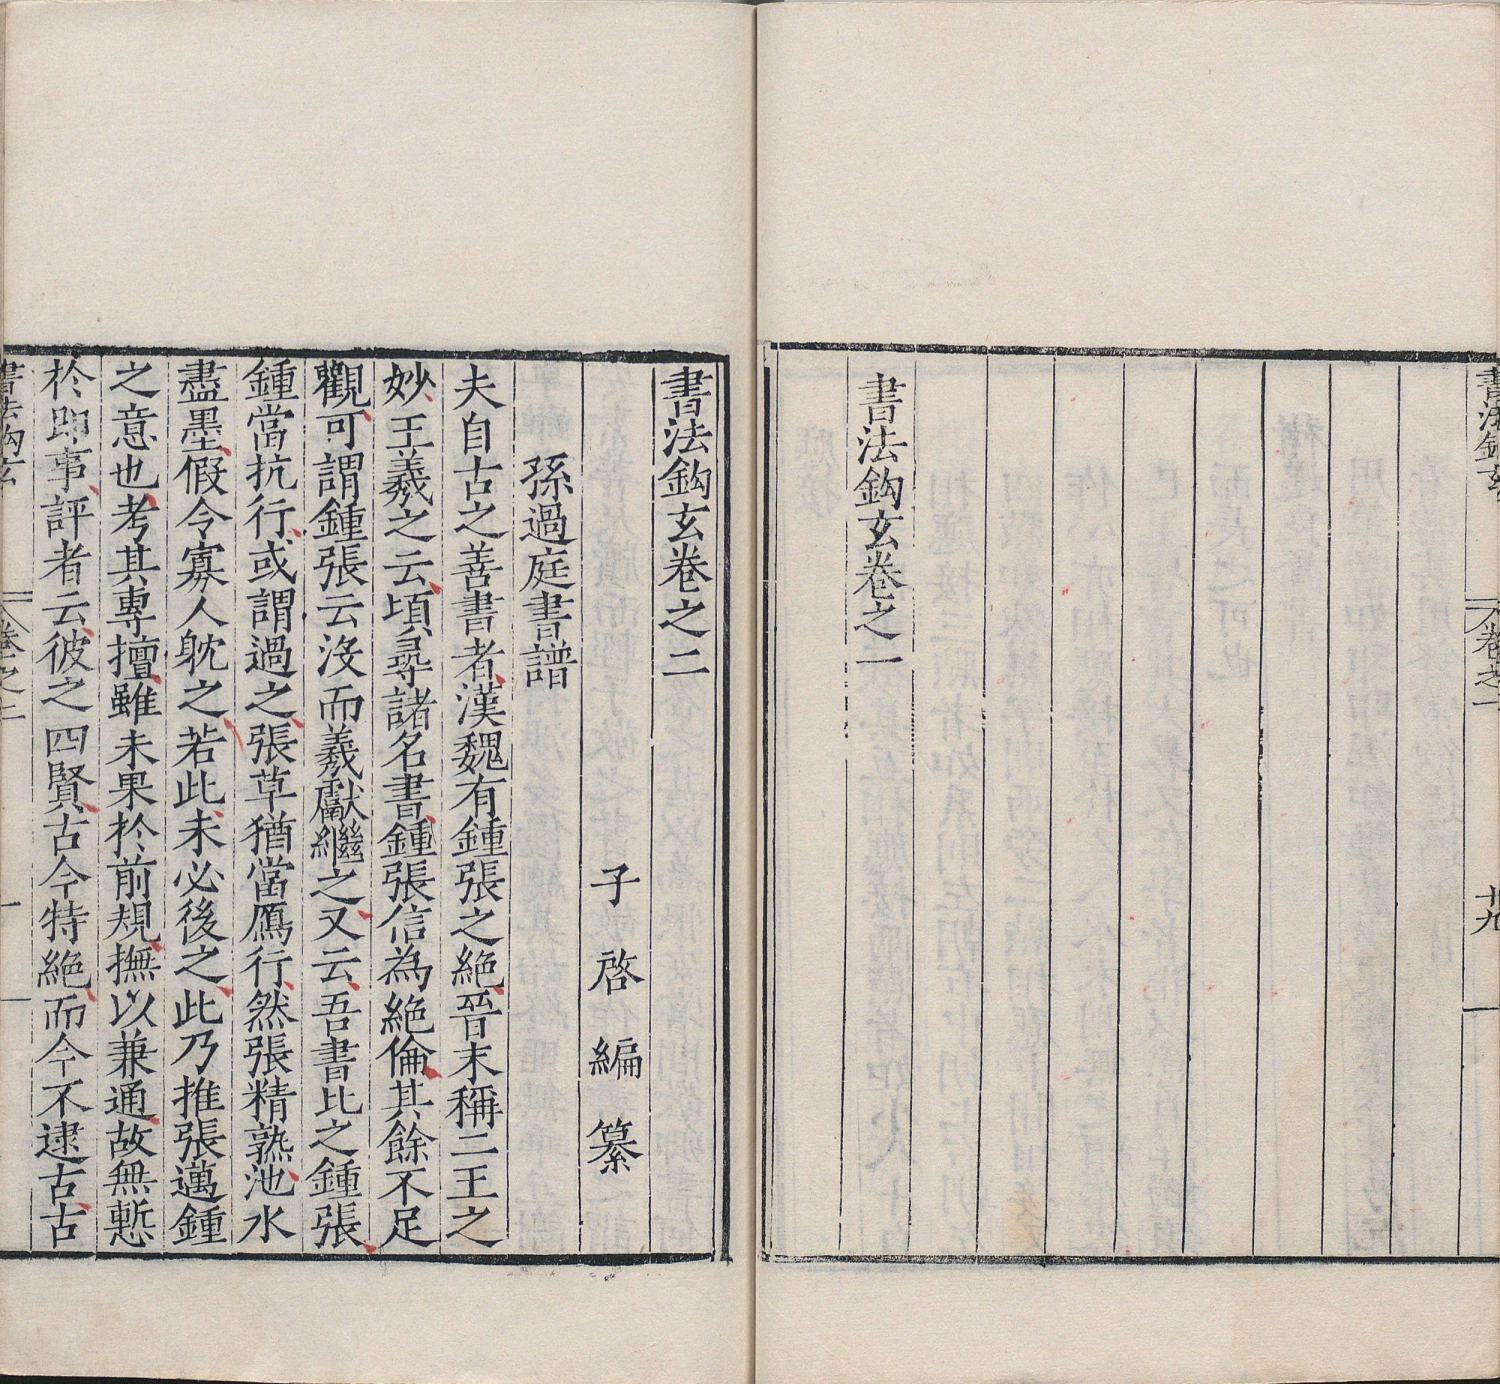 書法鈎玄
卷之一
廿九
書法鈎玄卷之一
書法鈎玄卷之二
子啓編纂
孫過庭書譜
夫自古之善書者漢魏有鍾張之絕晉末稱二王之
妙王羲之云頃尋諸名書鍾張信為絕倫其餘不足
觀可謂鍾張云沒而羲獻繼之又云吾書比之鍾張
鍾當抗行或謂過之張草猶當鴈行然張精熟池水
盡墨假令寡人躭之若此未必後之此乃推張邁鍾
之意也考其專擅雖未果於前規撫以兼通故無慙
於即事評者云彼之四賢古今特絕而今不逮古古
書法鈎玄
卷之二
一